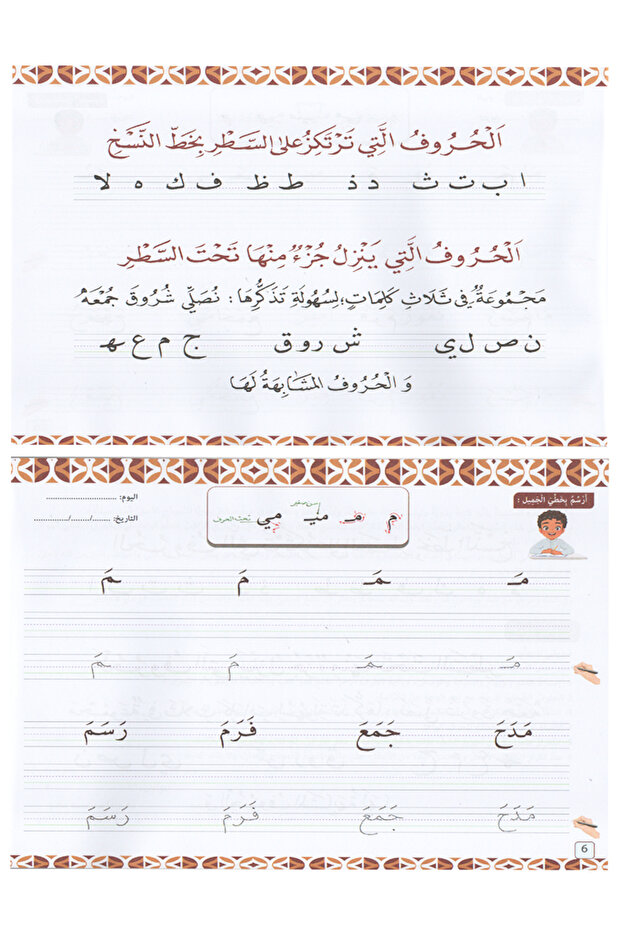 اَلْحُرُوفُ الَّتِي تَرْتَكِزُ عَلىٰ السَّطْرِ بِخَطِّ النَّسْخِ
ا ب ت ث د ذ ط ظ ف ك ه لا
اَلْحُرُوفُ الَّتِي يَنْزِلُ جُزْءٌ مِنْهَا تَحْتَ السَّطْرِ
مَجْمُوعَةٌ فِي ثَلَاثِ كَلِمَاتٍ؛ لِسُهُولَةِ تَذَكُّرِهَا: نُصَلِّي شُرُوقَ جُمْعَه
ن ص ل ي ش ر و ق ج م ع ه
وَ الْحُرُوفُ المُشَابِهَةُ لَهَا
أَرْسُمُ بِخَطِّيَ الْجَمِيل :
م مـ ميـ مي تحت الحرف
اليوم: ........................
التاريخ: ....../....../......
مَـ ـمَـ مَ ـمَ
مَـ ـمَـ مَ ـمَ
مَدَحَ جَمَعَ فَرَمَ رَسَمَ
مَدَحَ جَمَعَ فَرَمَ رَسَمَ
6